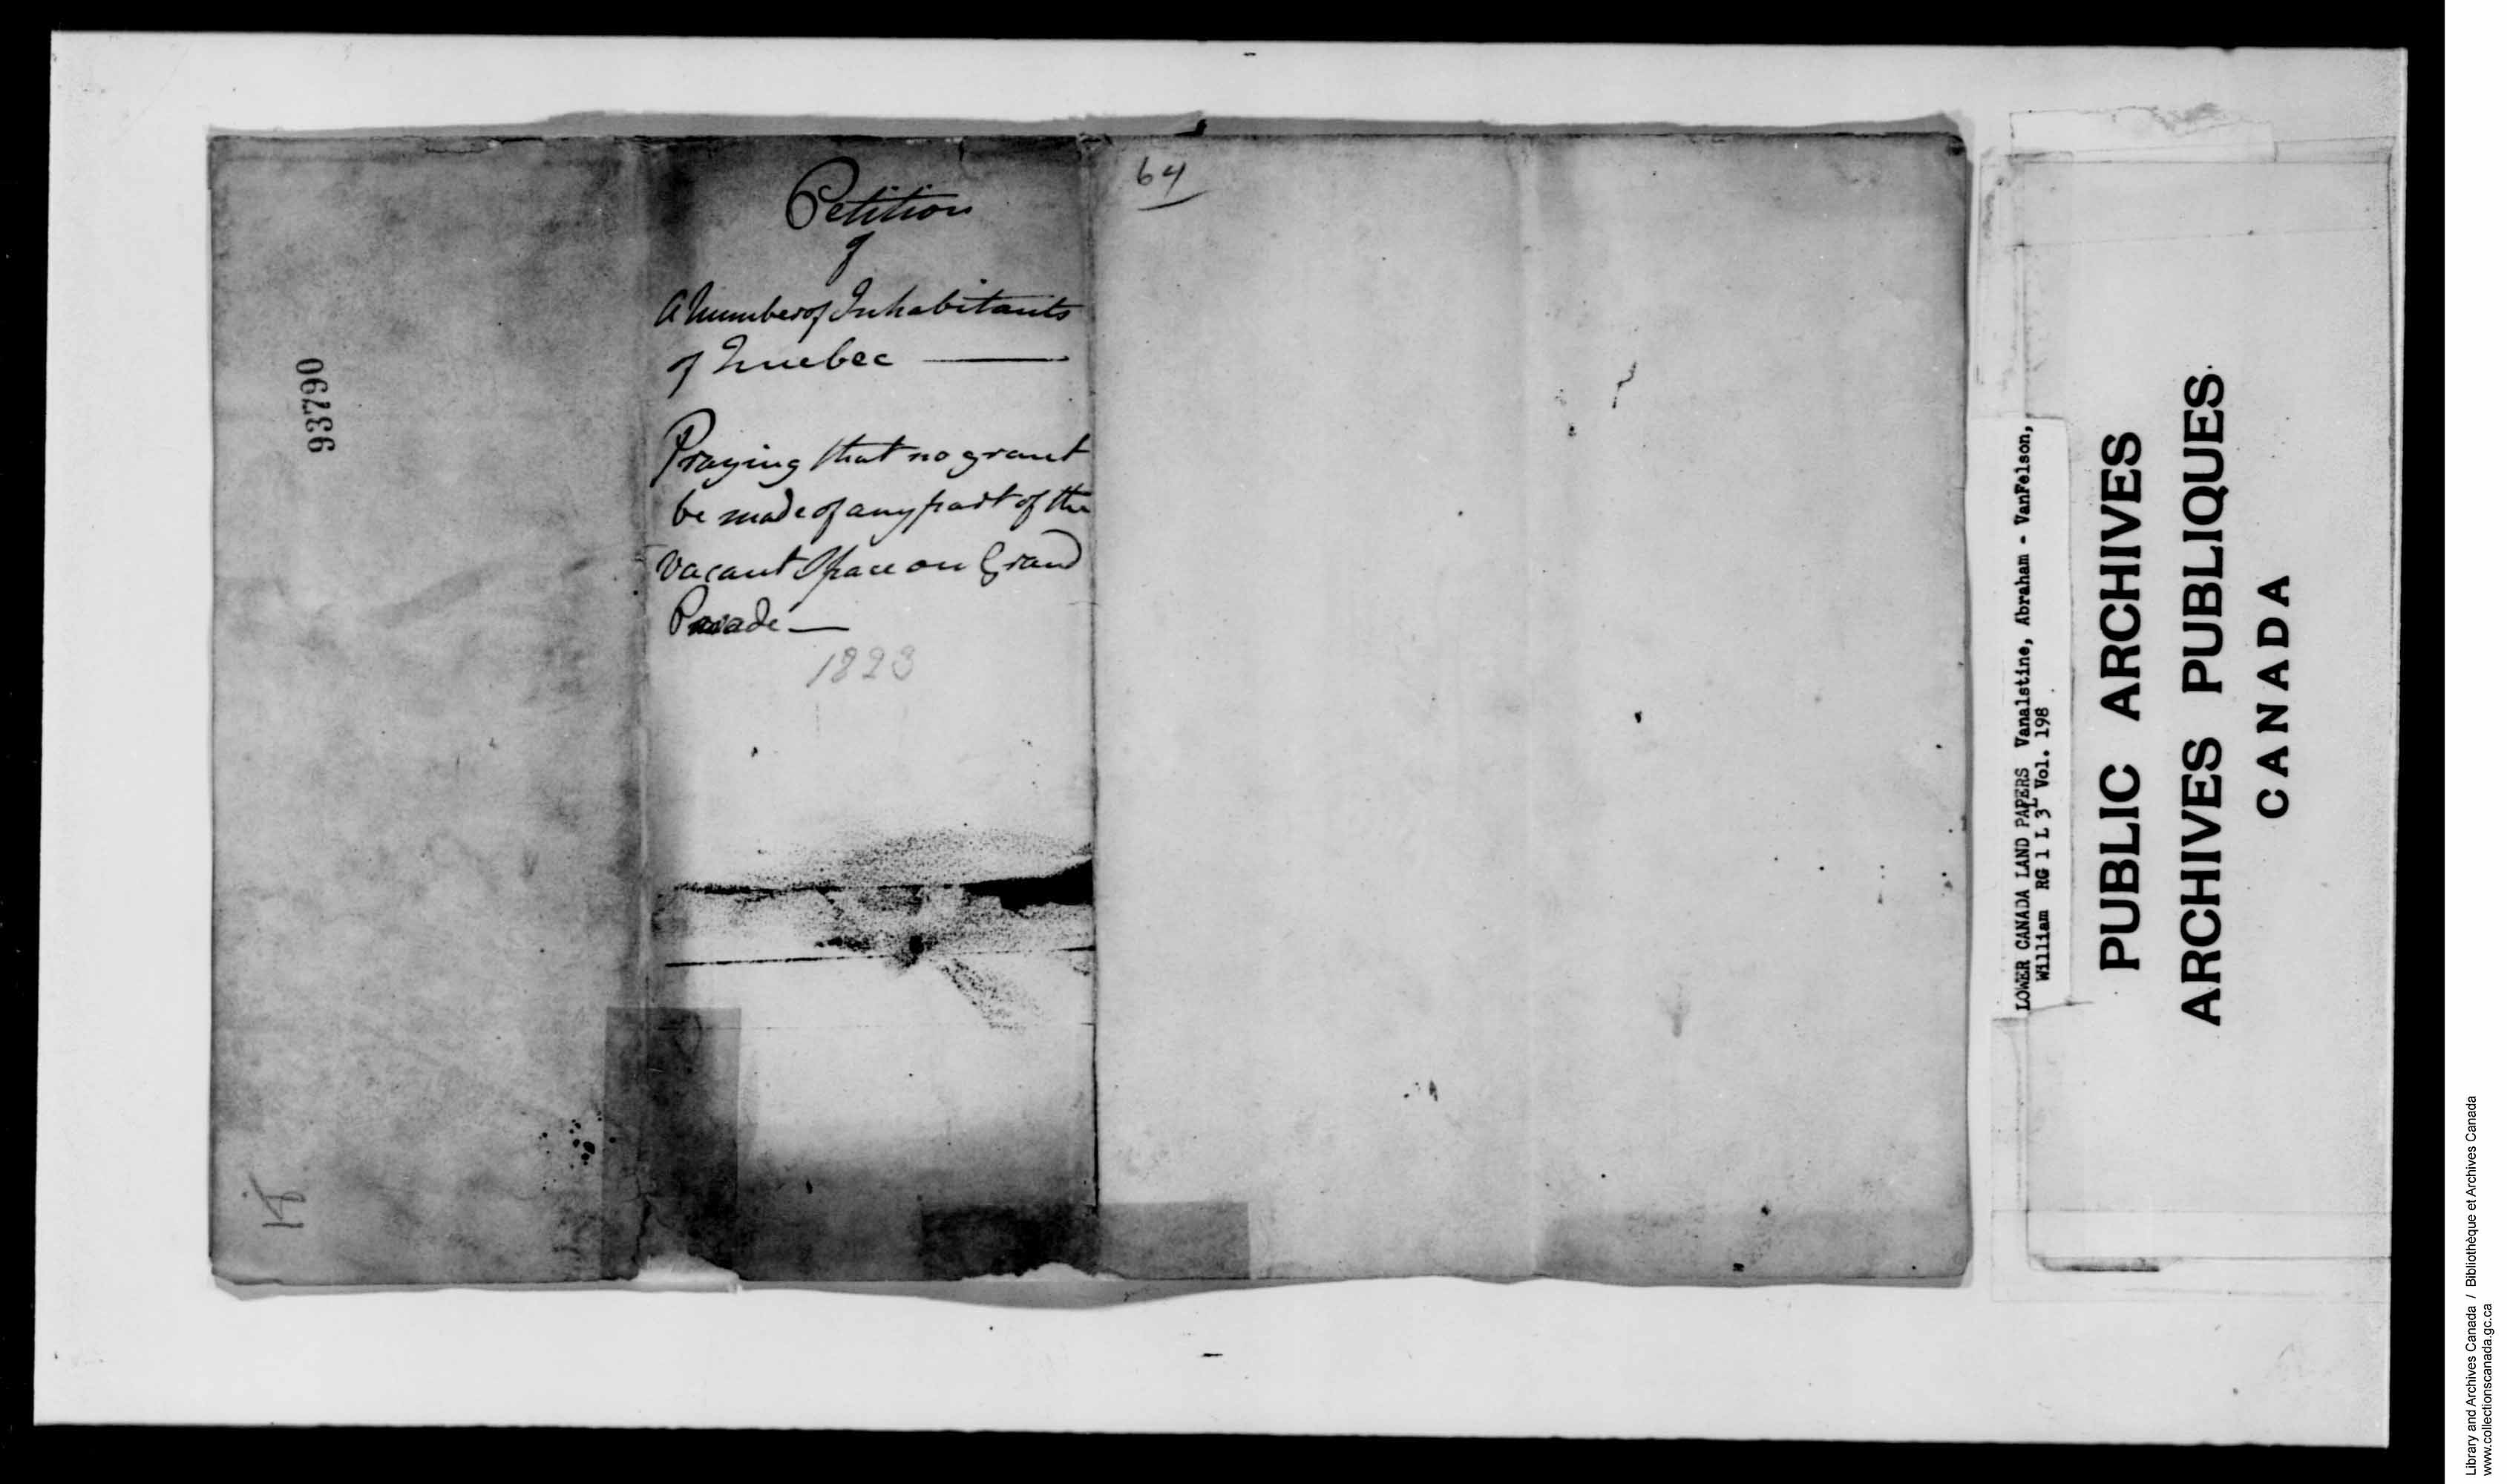 93790
Petition
of
a number of Inhabitants
of Quebec —
Praying that no grant
be made of any part of the
vacant Space on Grand
Parade —
1823
64
LOWER CANADA LAND PAPERS Vanalstine, Abraham - VanFelson,
William RG 1 L 3L Vol. 198
PUBLIC ARCHIVES
ARCHIVES PUBLIQUES
CANADA
Library and Archives Canada / Bibliothèque et Archives Canada
www.collectionscanada.gc.ca